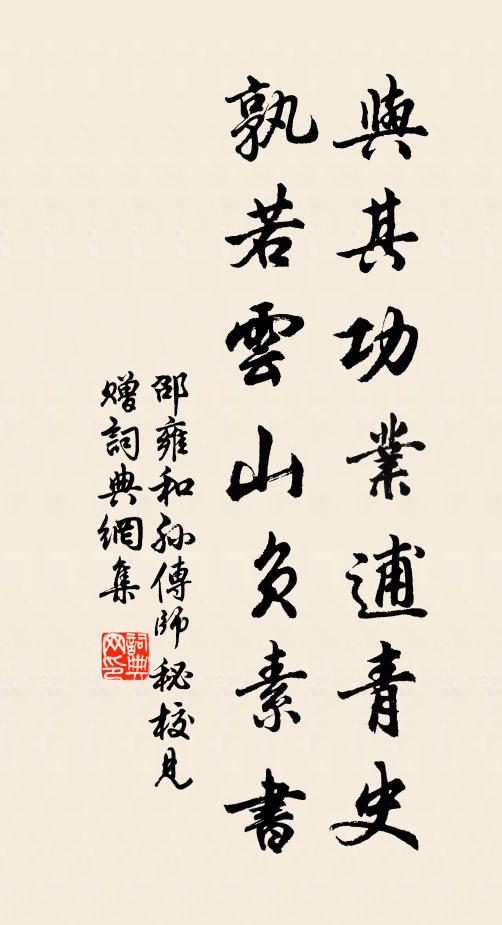 與其功業逋青史
孰若雲山負素書
邵雍和孙傳師秘校見
贈詞典網集
詞典
网印